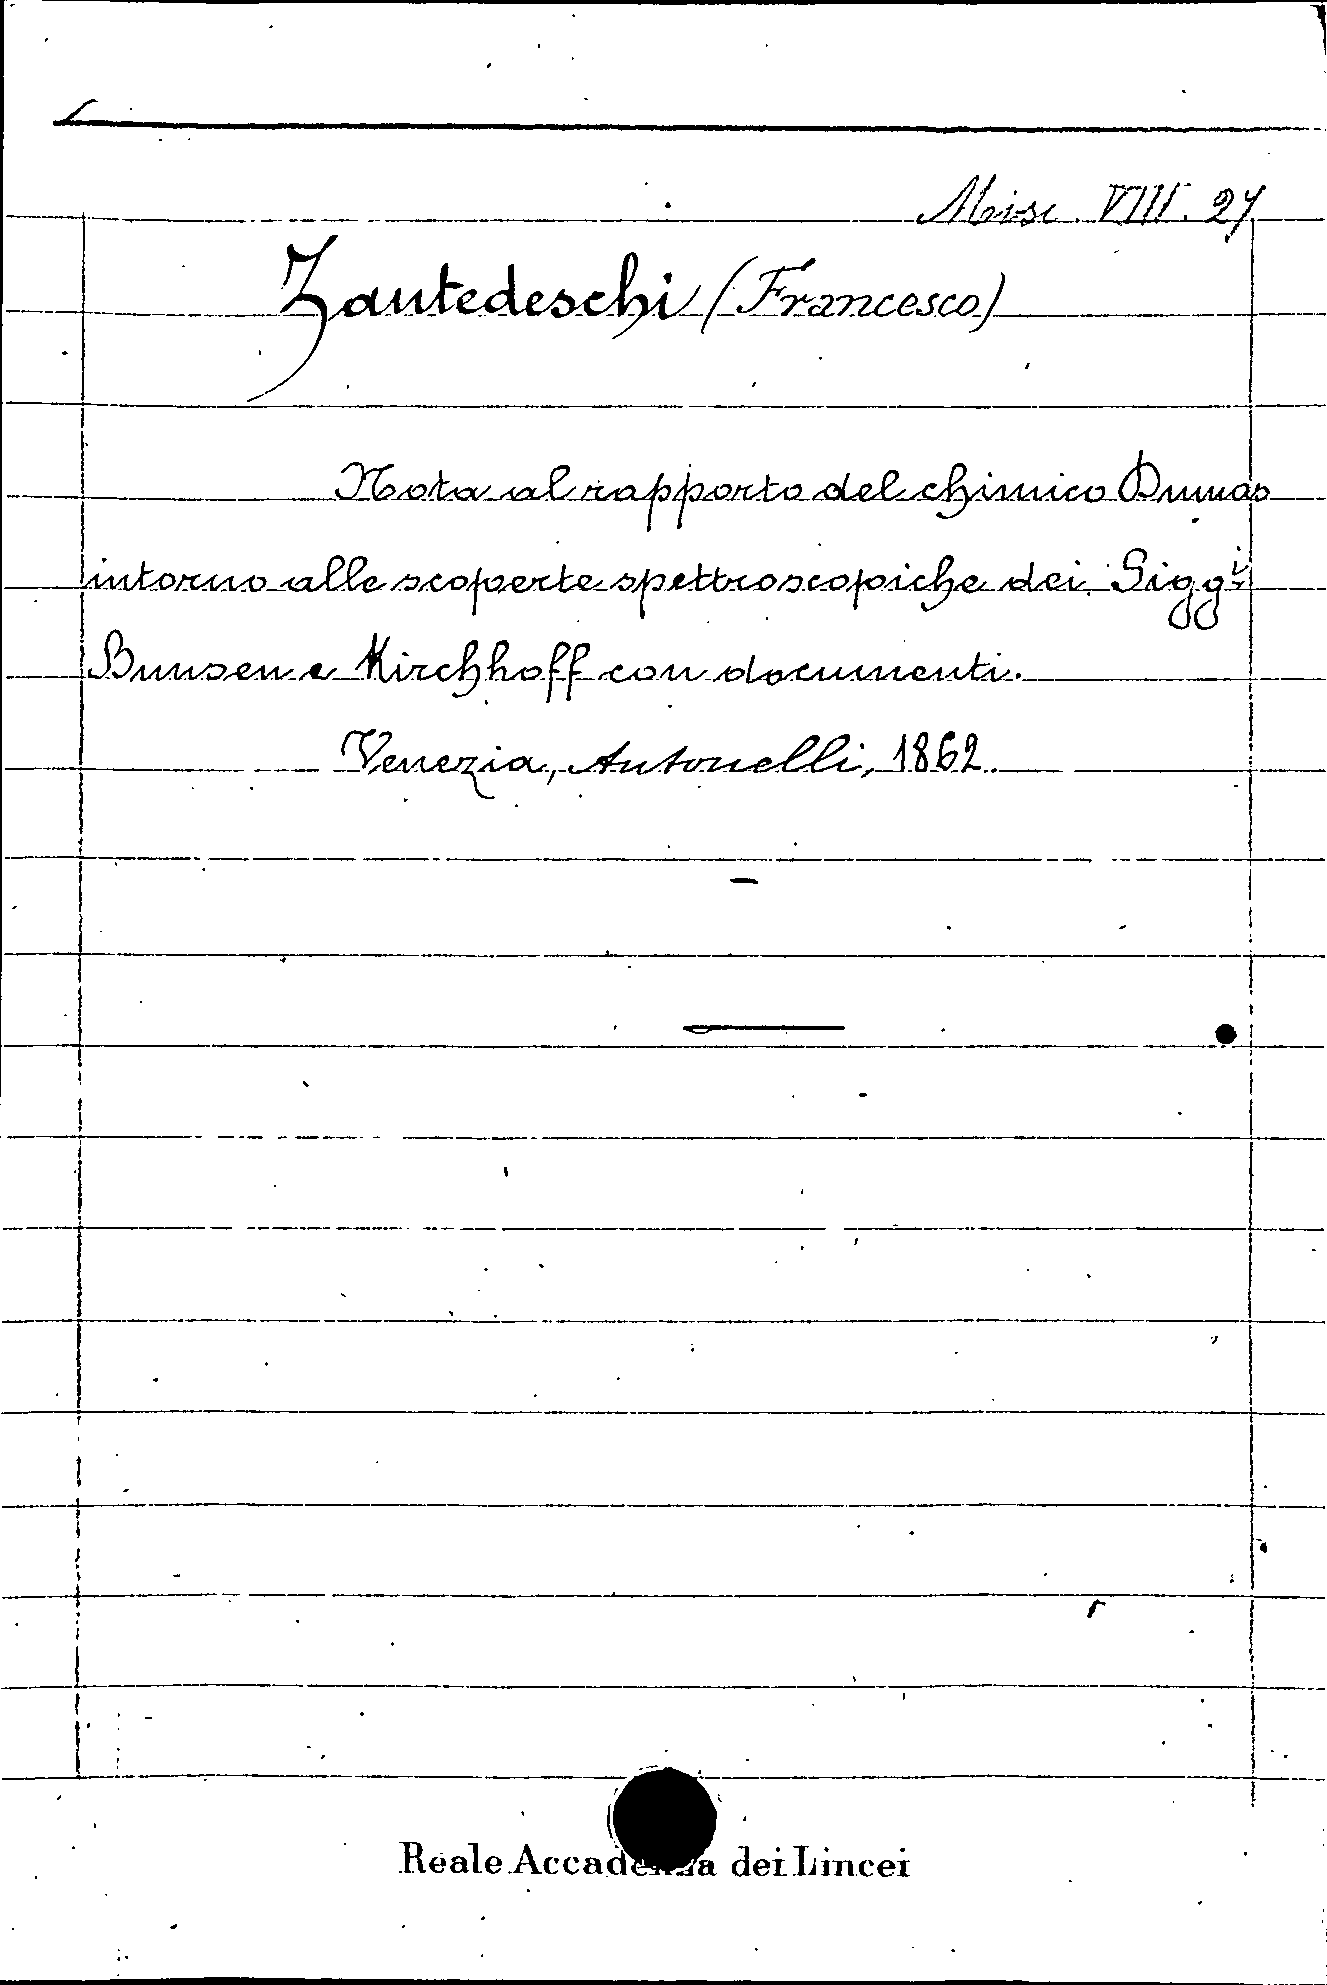 Misc. VIII. 27
Zantedeschi (Francesco)
Nota al rapporto del chimico Dumas
intorno alle scoperte spettroscopiche dei Sigg.i
Bunsen e Kirchhoff con documenti.
Venezia, Antonelli, 1862.
Reale Accademia dei Lincei